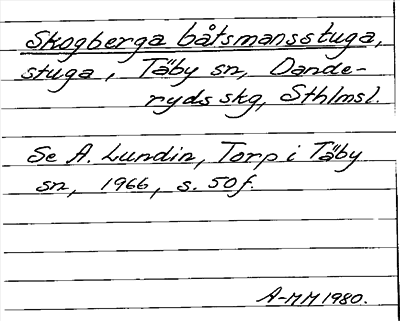 Skogberga båtsmansstuga,
stuga, Täby sn, Dande-
ryds skg, Sthlmsl.
Se A. Lundin, Torp i Täby
sn, 1966, s. 50f.
A-MM 1980.